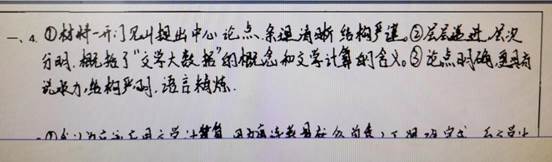 一、4.①材料一开门见山提出中心论点,条理清晰结构严谨。②层层递进,层次
分明,概括了“文学大数据”的概念和文学计算的含义。③论点明确,更具有
说服力,结构严明,语言精炼.